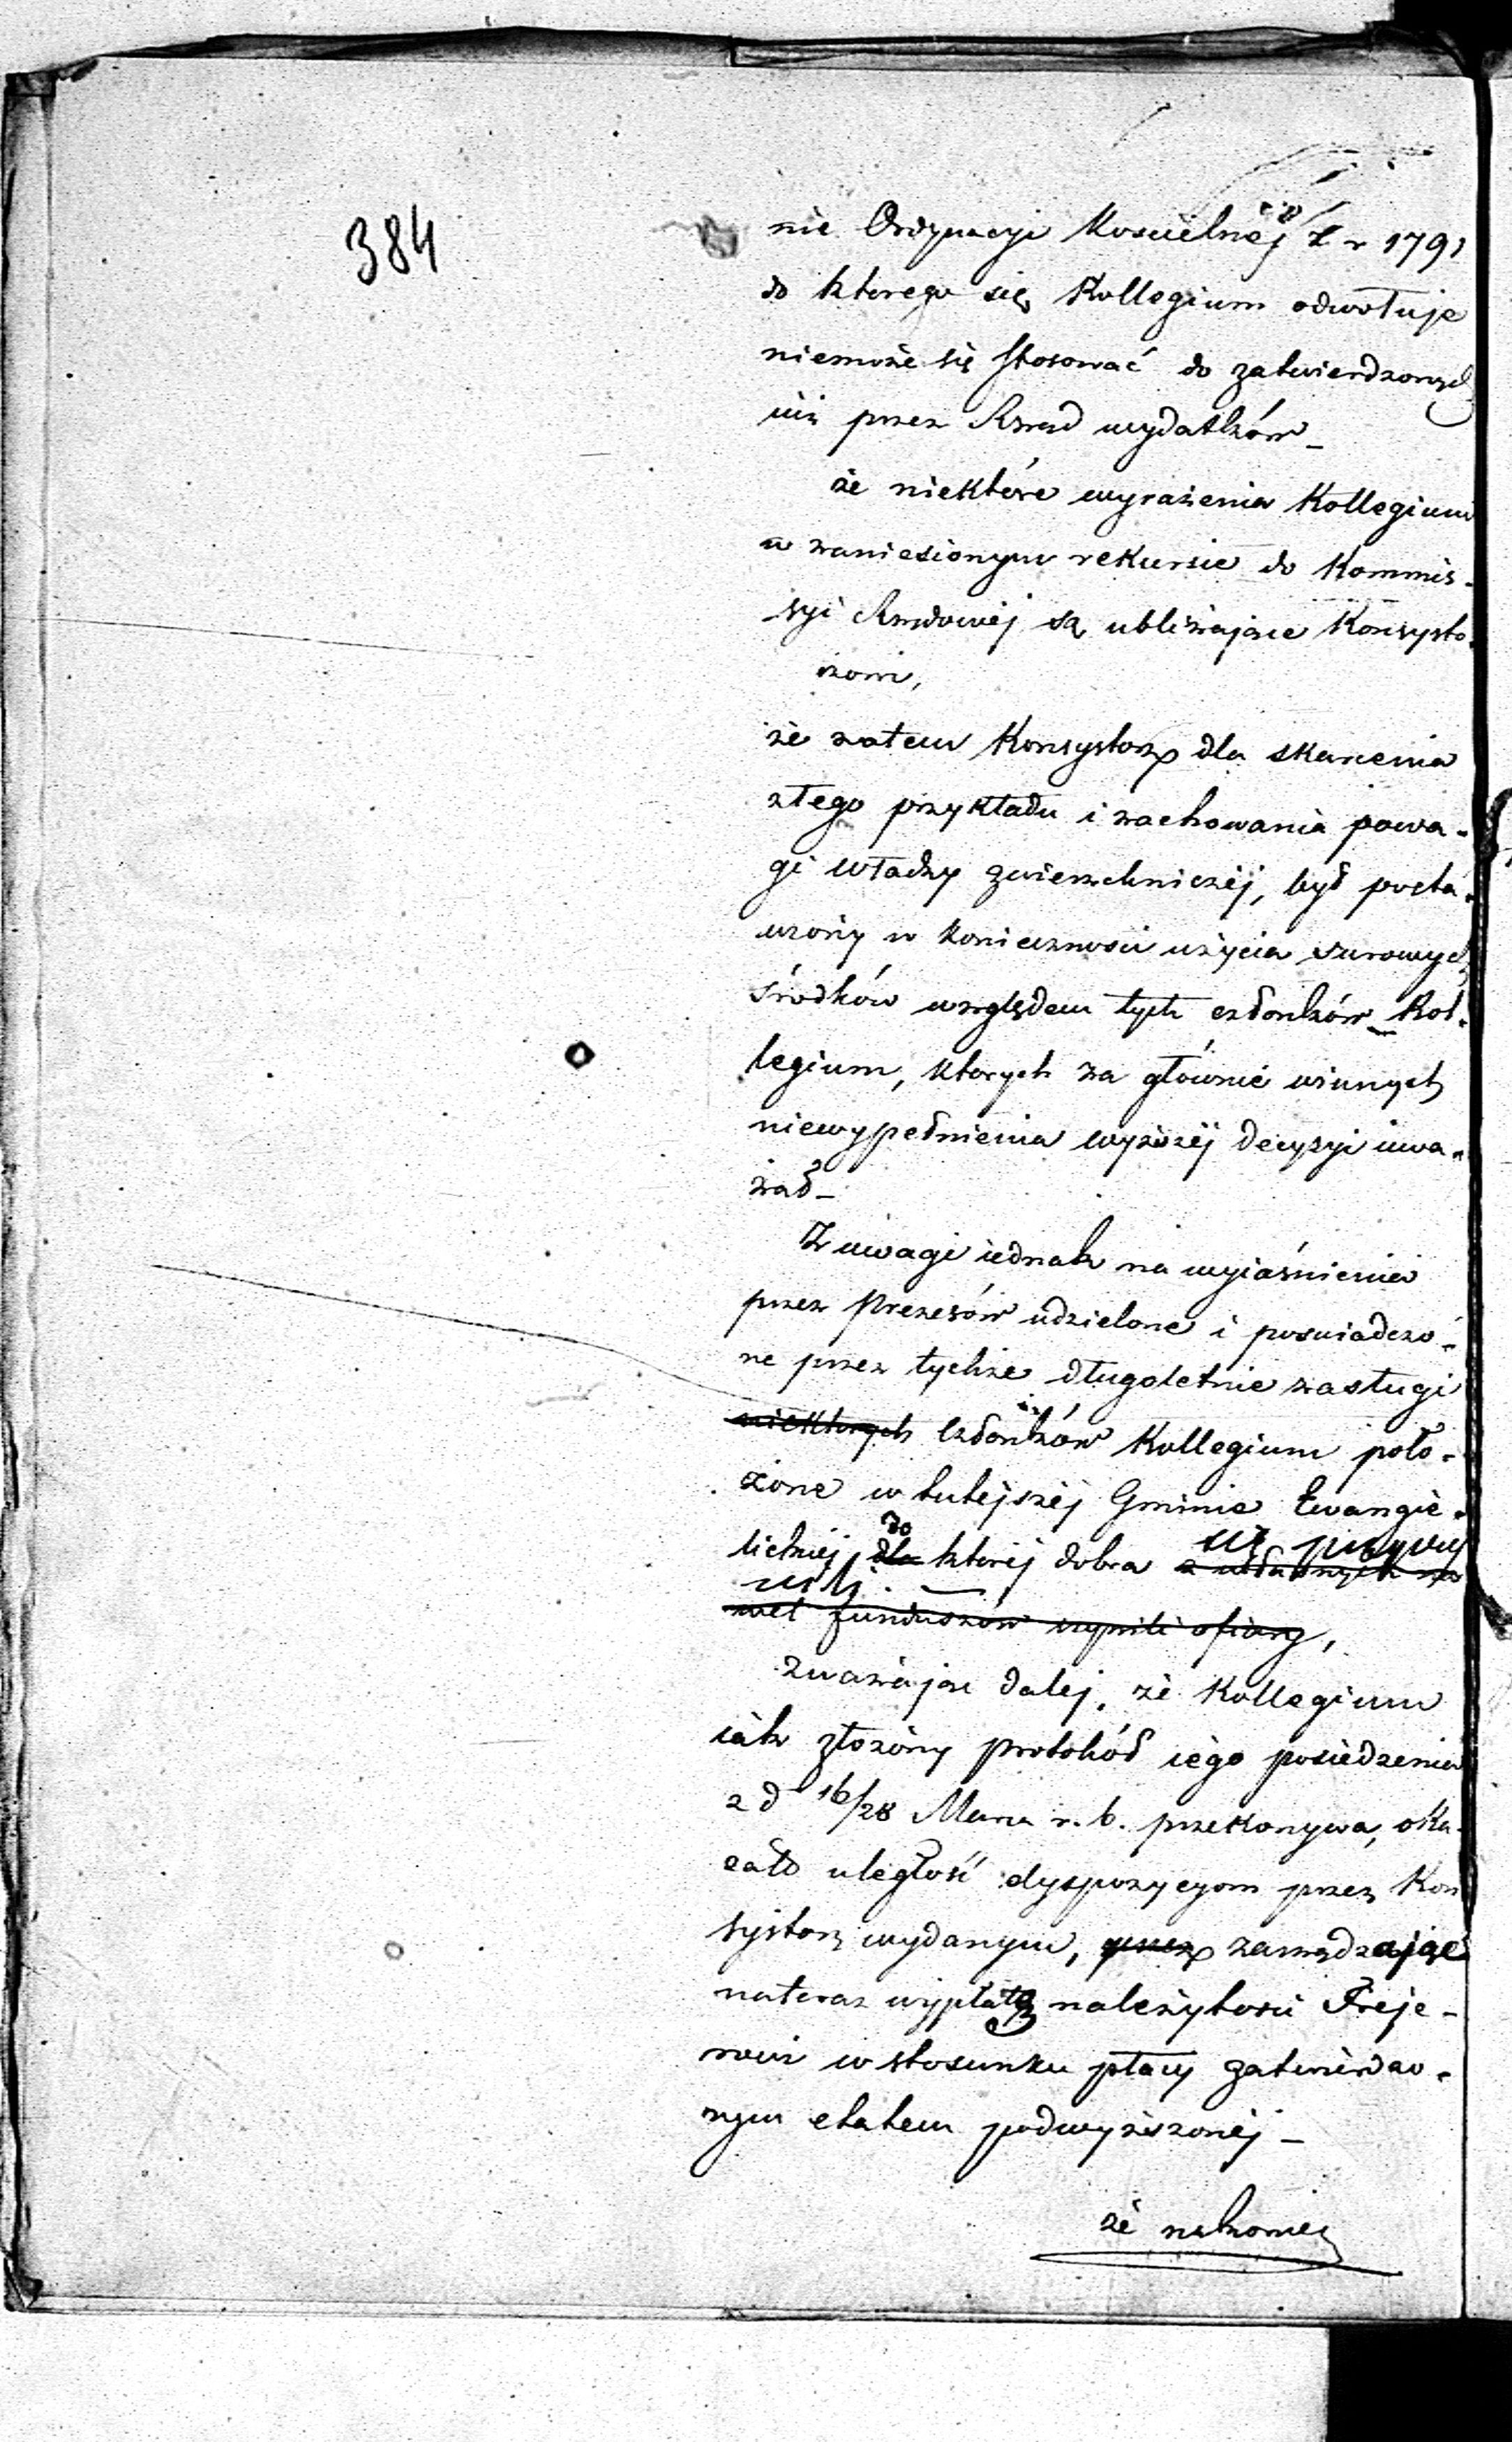 384
nie Ordynacyi Kościelnéj z r 1791
do którego się Kollegium odwołuje
niemoże się stosować do zatwierdzonych
iuż przez Rząd wydatków –
że niektóre wyrażenia Kollegium
w zaniesionym rekursie do Kommis-
syi Rządowéj są ubliżaiące Konsysto-
rzowi,
że zatem Konsystorz dla skarcenia
złego przykładu i zachowania powa-
gi władzy zwierzchniczéj, był posta-
wiony w konieczności użycia surowych
środków względem tych członków Kol-
legium, których za głównie winnych
niewypełnienia wyższéj decyzyi uwa-
żał –
Z uwagi iednak na wyiaśnienia
przez Prezesów udzielone i poświadczo-
ne przez tychże długoletnie zasługi
niektórych członków Kollegium poło-
żone w tutejszéj Gminie Ewangie-
lickiéj, dla do któréj dobra się przyczy
nili. –
wet funduszów czynili ofiary,
Zważając daléj, że Kollegium
iak złożony protokół iego posiedzenia
z d 16/28 Marca r. b. przekonywa, oka-
zało uległość dyspozycyom przez Kon
systorz wydanym, przez zarządzając
nateraz wypłatę należytości Freje-
rowi w stosunku płacy zatwierdzo-
nym etatem podwyższonéj –
że nakoniec